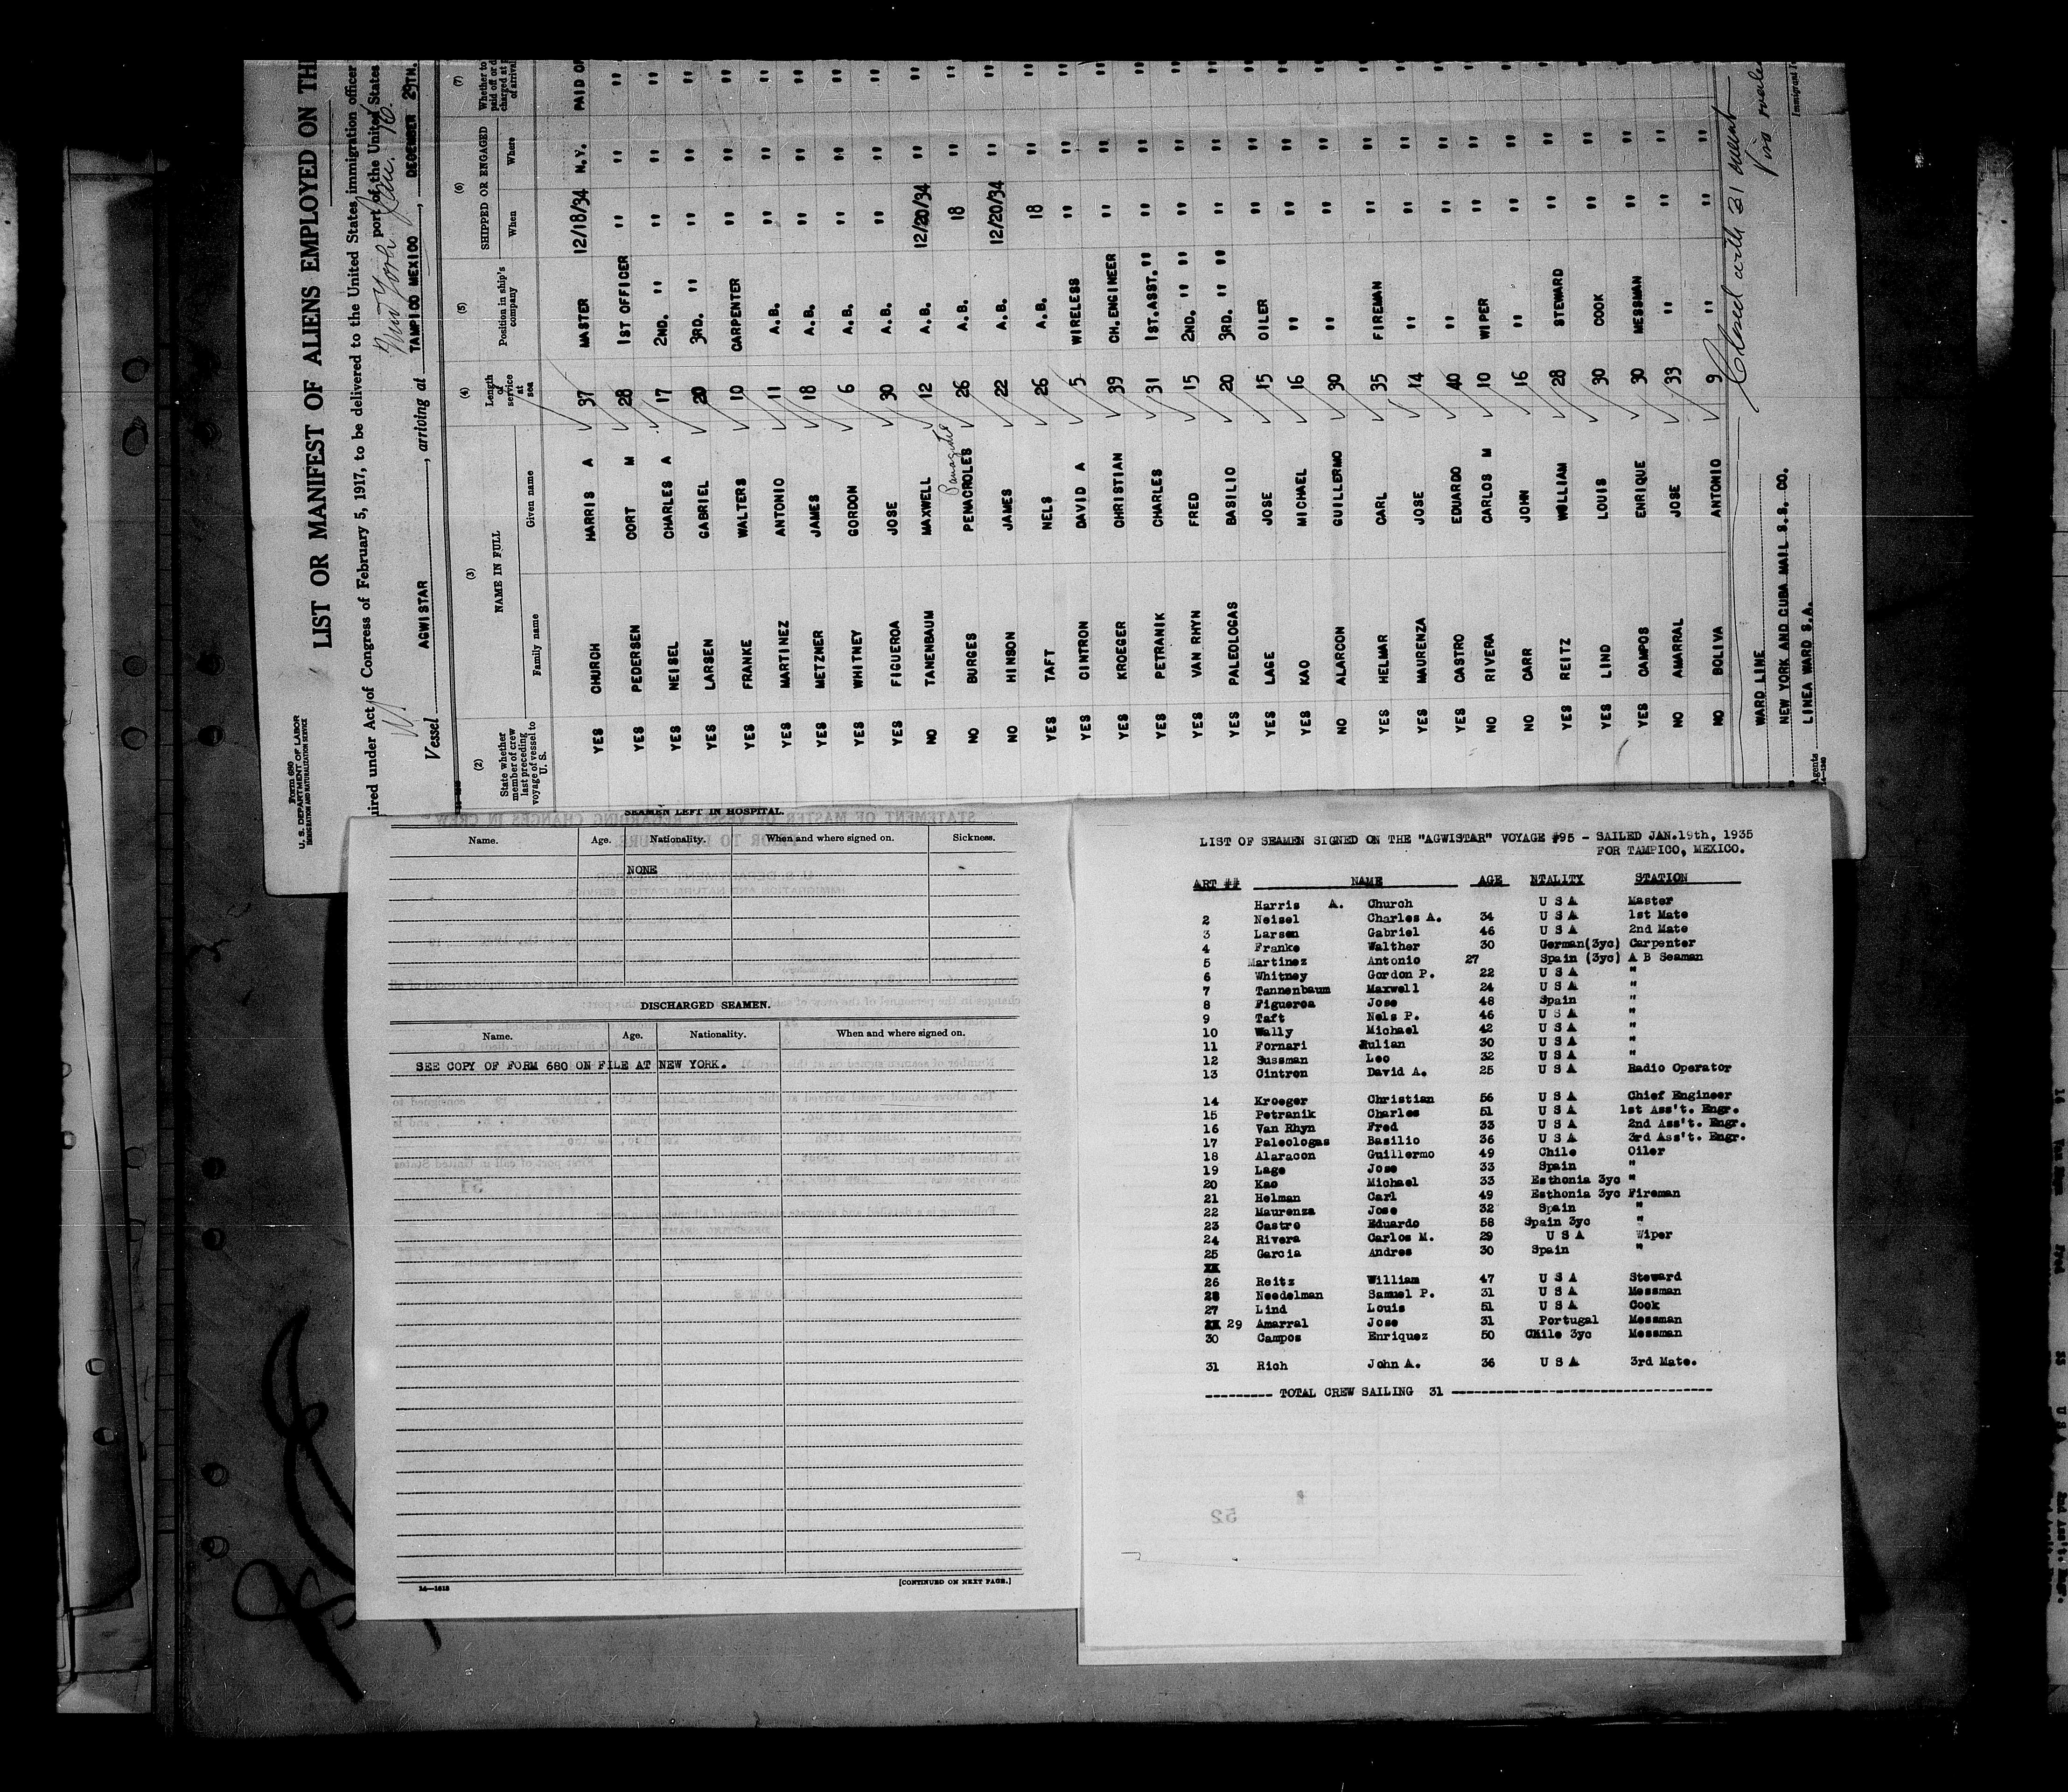 Form 680
U. S. DEPARTMENT OF LABOR
IMMIGRATION AND NATURALIZATION SERVICE
LIST OR MANIFEST OF ALIENS EMPLOYED ON TH
ired under Act of Congress of February 5, 1917, to be delivered to the United States immigration officer
port of the United States
New York Jan. 16
Vessel AGWISTAR , arriving at TAMPICO MEXICO , DECEMBER 29TH.
(2) (3) (4) (5) (6) (7)
State whether member of crew last preceding voyage of vessel to U. S.
NAME IN FULL
Family name Given name
Length of service at sea
Position in ship's company
SHIPPED OR ENGAGED
When Where
YES CHURCH HARRIS A 37 MASTER 12/18/34 N.Y. PAID OF
YES PEDERSEN CORT M 28 1ST OFFICER " " "
YES NEISEL CHARLES A 17 2ND. " " " "
YES LARSEN GABRIEL 20 3RD. " " " "
YES FRANKE WALTERS 10 CARPENTER " " "
YES MARTINEZ ANTONIO 11 A.B. " " "
YES METZNER JAMES 18 A.B. " " "
YES WHITNEY GORDON 6 A.B. " " "
YES FIGUEROA JOSE 30 A.B. " " "
NO TANENBAUM MAXWELL 12 A.B. 12/20/34 " "
NO BURGES PENACROLES 26 A.B. 18 " "
NO HINSON JAMES 22 A.B. 12/20/34 " "
YES TAFT NELS 26 A.B. 18 " "
YES CINTRON DAVID A 5 WIRELESS " " "
YES KROEGER CHRISTIAN 39 CH.ENGINEER " " "
YES PETRANIK CHARLES 31 1ST.ASST." " " "
YES VAN RHYN FRED 15 2ND. " " " " "
YES PALEOLOGAS BASILIO 20 3RD. " " " " "
YES LAGE JOSE 15 OILER " " "
YES KAO MICHAEL 16 " " " "
NO ALARCON GUILLERMO 30 " " " "
YES HELMAR CARL 35 FIREMAN " " "
YES MAURENZA JOSE 14 " " " "
YES CASTRO EDUARDO 40 " " " "
NO RIVERA CARLOS M 10 WIPER " " "
NO CARR JOHN 16 " " " "
YES REITZ WILLIAM 28 STEWARD " " "
YES LIND LOUIS 30 COOK " " "
YES CAMPOS ENRIQUE 30 MESSMAN " " "
NO AMARRAL JOSE 33 " " " "
NO BOLIVA ANTONIO 9 " " " "
Closed with 31
WARD LINE
NEW YORK AND CUBA MAIL S.S. CO.
Agents LINEA WARD S.A.
SEAMEN LEFT IN HOSPITAL.
Name. Age. Nationality. When and where signed on. Sickness.
NONE
DISCHARGED SEAMEN.
Name. Age. Nationality. When and where signed on.
SEE COPY OF FORM 680 ON FILE AT NEW YORK.
14—1618 [CONTINUED ON NEXT PAGE.]
LIST OF SEAMEN SIGNED ON THE "AGWISTAR" VOYAGE #95 - SAILED JAN.19th, 1935
FOR TAMPICO, MEXICO.
ART ## NAME AGE NTALITY STATION
Harris A. Church U S A Master
2 Neisel Charles A. 34 U S A 1st Mate
3 Larsen Gabriel 46 U S A 2nd Mate
4 Franke Walther 30 German(3yc) Carpenter
5 Martinez Antonio 27 Spain (3yc) A B Seaman
6 Whitney Gordon P. 22 U S A "
7 Tannenbaum Maxwell 24 U S A "
8 Figueroa Jose 48 Spain "
9 Taft Nels P. 46 U S A "
10 Wally Michael 42 U S A "
11 Fornari Julian 30 U S A "
12 Sussman Leo 32 U S A "
13 Cintron David A. 25 U S A Radio Operator
14 Kroeger Christian 56 U S A Chief Engineer
15 Petranik Charles 51 U S A 1st Ass't. Engr.
16 Van Rhyn Fred 33 U S A 2nd Ass't. Engr.
17 Paleologas Basilio 36 U S A 3rd Ass't. Engr.
18 Alaracon Guillermo 49 Chile Oiler
19 Lage Jose 33 Spain "
20 Kao Michael 33 Esthonia 3yc "
21 Helman Carl 49 Esthonia 3yc Fireman
22 Maurenza Jose 32 Spain "
23 Castro Eduardo 58 Spain 3yc "
24 Rivera Carlos M. 29 U S A Wiper
25 Garcia Andres 30 Spain "
26 Reitz William 47 U S A Steward
28 Needelman Samuel P. 31 U S A Messman
27 Lind Louis 51 U S A Cook
29 Amarral Jose 31 Portugal Messman
30 Campos Enriquez 50 Chile 3yc Messman
31 Rich John A. 36 U S A 3rd Mate.
--------- TOTAL CREW SAILING 31 ---------
52